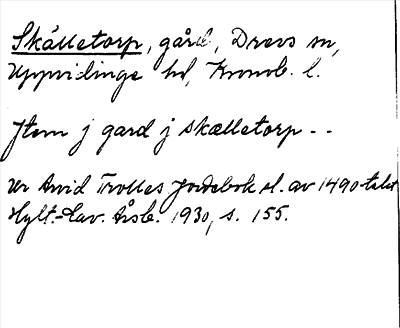 Skälletorp, gård, Drevs sn,
Uppvidinge hd, Kronob. l.
Jtem j gard j skælletorp - -
Ur Arvid Trolles Jordebok sl. av 1490-talet
Hylt.-Cav. Årsb. 1930, s. 155.